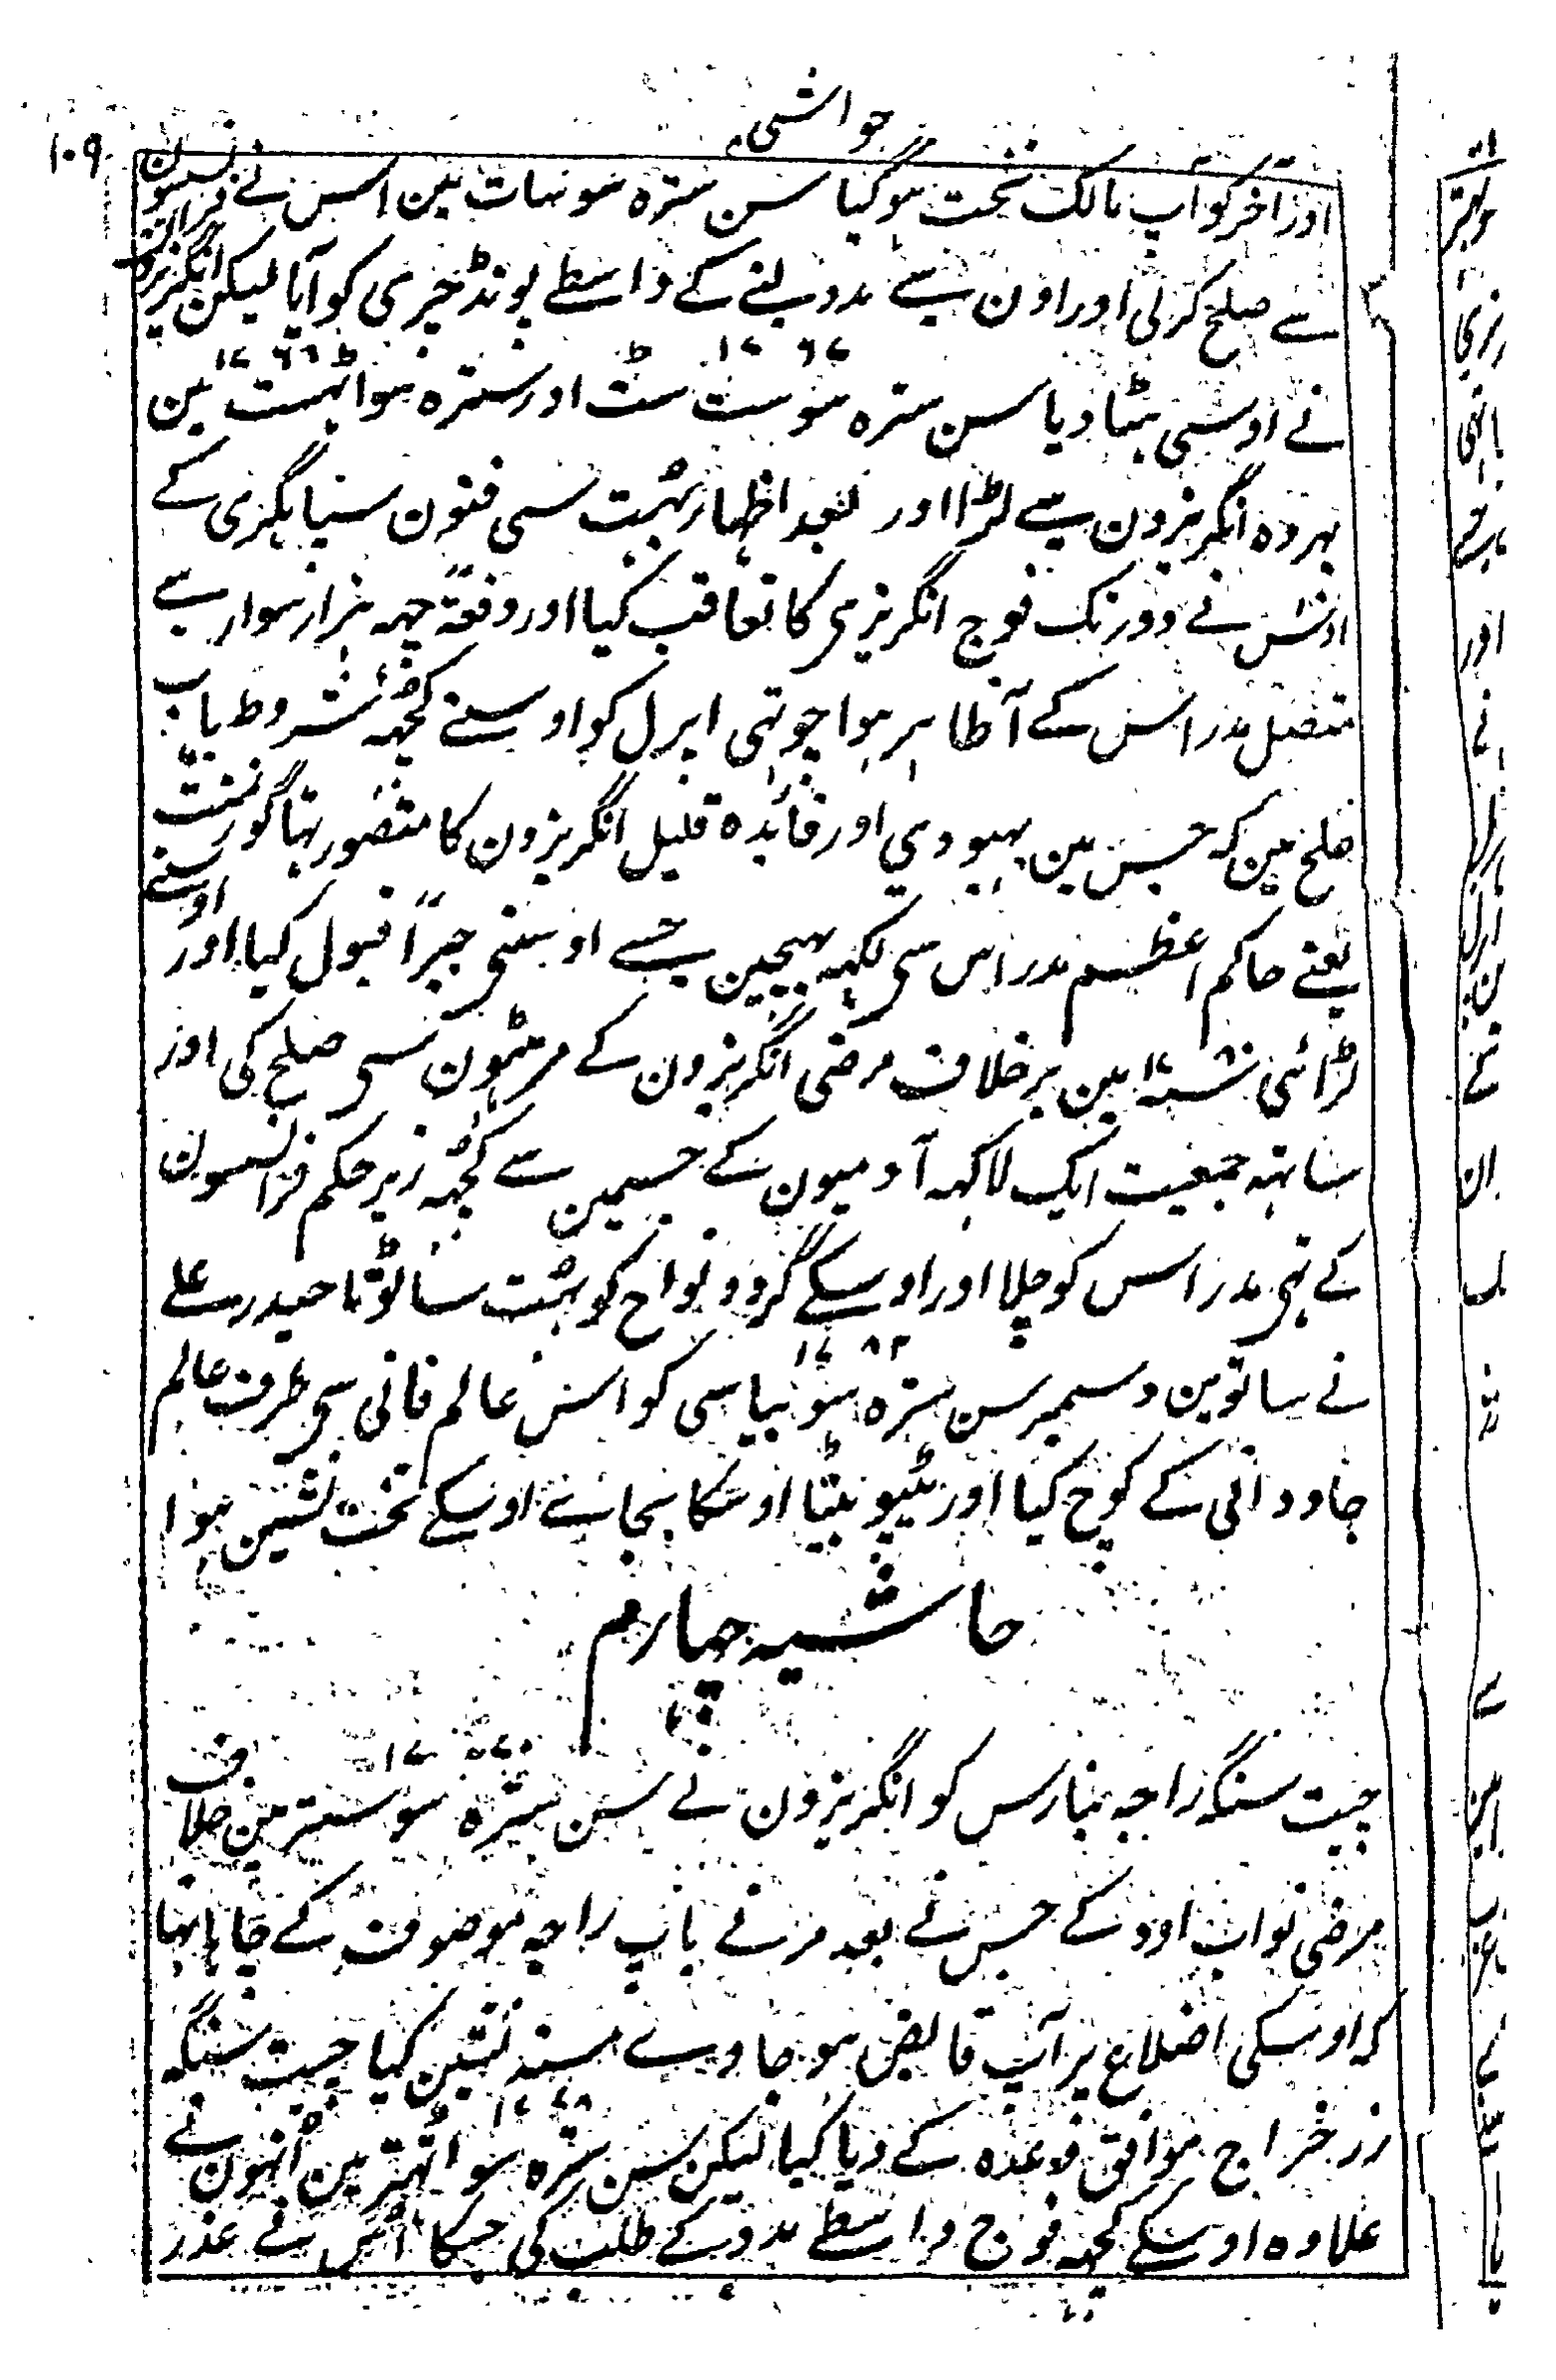 حواشی
۱۰۹
اور آخر کو آپ مالک تخت ہوگیا سن سترہ سو سات مین اس نے فرانسیسون
سے صلح کرلی اور اون سے مدد لنے کے واسطے پونڈچری کو آیا لیکن انگریزون
نے اوسی ہٹا دیا سن سترہ سو ست سٹ ۱۷۶۷ اور سترہ سو اٹہسٹ ۱۷۶۸ مین
پہر وہ انگریزون سے لڑا اور بعد اظہار بہت سی فنون سپاہگری کے
اوس نے دور تک فوج انگریزی کا تعاقب کیا اور دفعۃً چہہ ہزار سوار سے
متصل مدراس کے آ ظاہر ہوا چوتہی اپرل کو اوسنے کچہہ شروط باب
صلح مین کہ جس مین بہبودی اور فائدہ قلیل انگریزون کا متصور تہا گورنمنٹ
یعنے حاکم اعظم مدراس سی لکہہ بہیجین جسے اوسنی جبراً قبول کیا اور اوسنے
لڑائی سنہ ۱۷۸۰ مین برخلاف مرضی انگریزون کے مرہٹون سی صلح کی اور
ساتہہ جمعیت ایک لاکہہ آدمیون کے جسمین سے کچہہ زیر حکم فرانسیسون
کے تہی مدراس کو چلا اور اوسکے گرد و نواح کو بہت سا لوٹا حیدر علے
نے ساتوین دسمبر سن سترہ سو بیاسی ۱۷۸۲ کو اس عالم فانی سی طرف عالم
جاودانی کے کوچ کیا اور ٹیپو بیٹا اوسکا بجائے اوسکے تخت نشین ہوا
حاشیہ چہارم
چیت سنگہ راجہ بنارس کو انگریزون نے سن سترہ سو ستر ۱۷۷۰ مین خلاف
مرضی نواب اودہ کے جس نے بعد مرنے باپ راجہ موصوف کے چاہا تہا
کہ اوسکی اضلاع پر آپ قابض ہو جاوے مسند نشین کیا چیت سنگہ
زر خراج موافق وعدہ کے دیا کیا لیکن سن سترہ سو اٹہتر ۱۷۷۸ مین اُنہون نے
علاوہ اوسکے کچہہ فوج واسطے مدد کے طلب کی جسکا اُس نے عذر